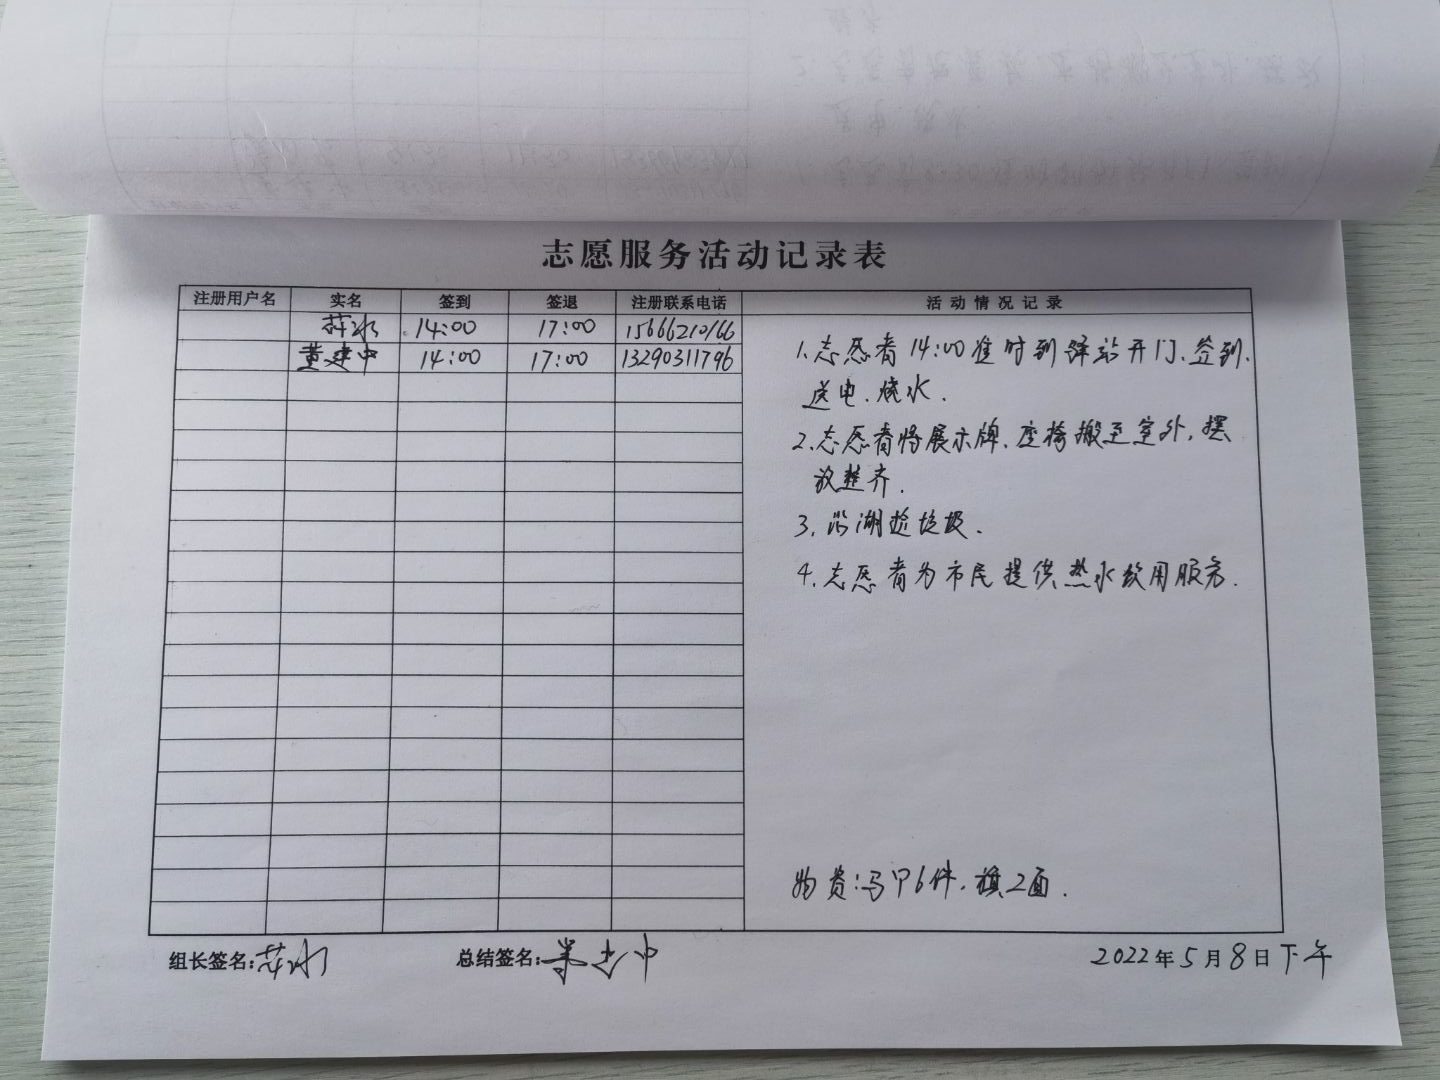 志愿服务活动记录表
注册用户名 实名 签到 签退 注册联系电话 活动情况记录
萍水 14:00 17:00 15666210166
黄建中 14:00 17:00 13290311796
1.志愿者14:00准时到驿站开门、签到、
送电、烧水.
2.志愿者将展示牌、座椅搬至室外,摆
放整齐.
3.沿湖捡垃圾.
4.志愿者为市民提供热水饮用服务.
物资:马甲6件,旗2面.
组长签名:萍水 总结签名: 2022年5月8日下午